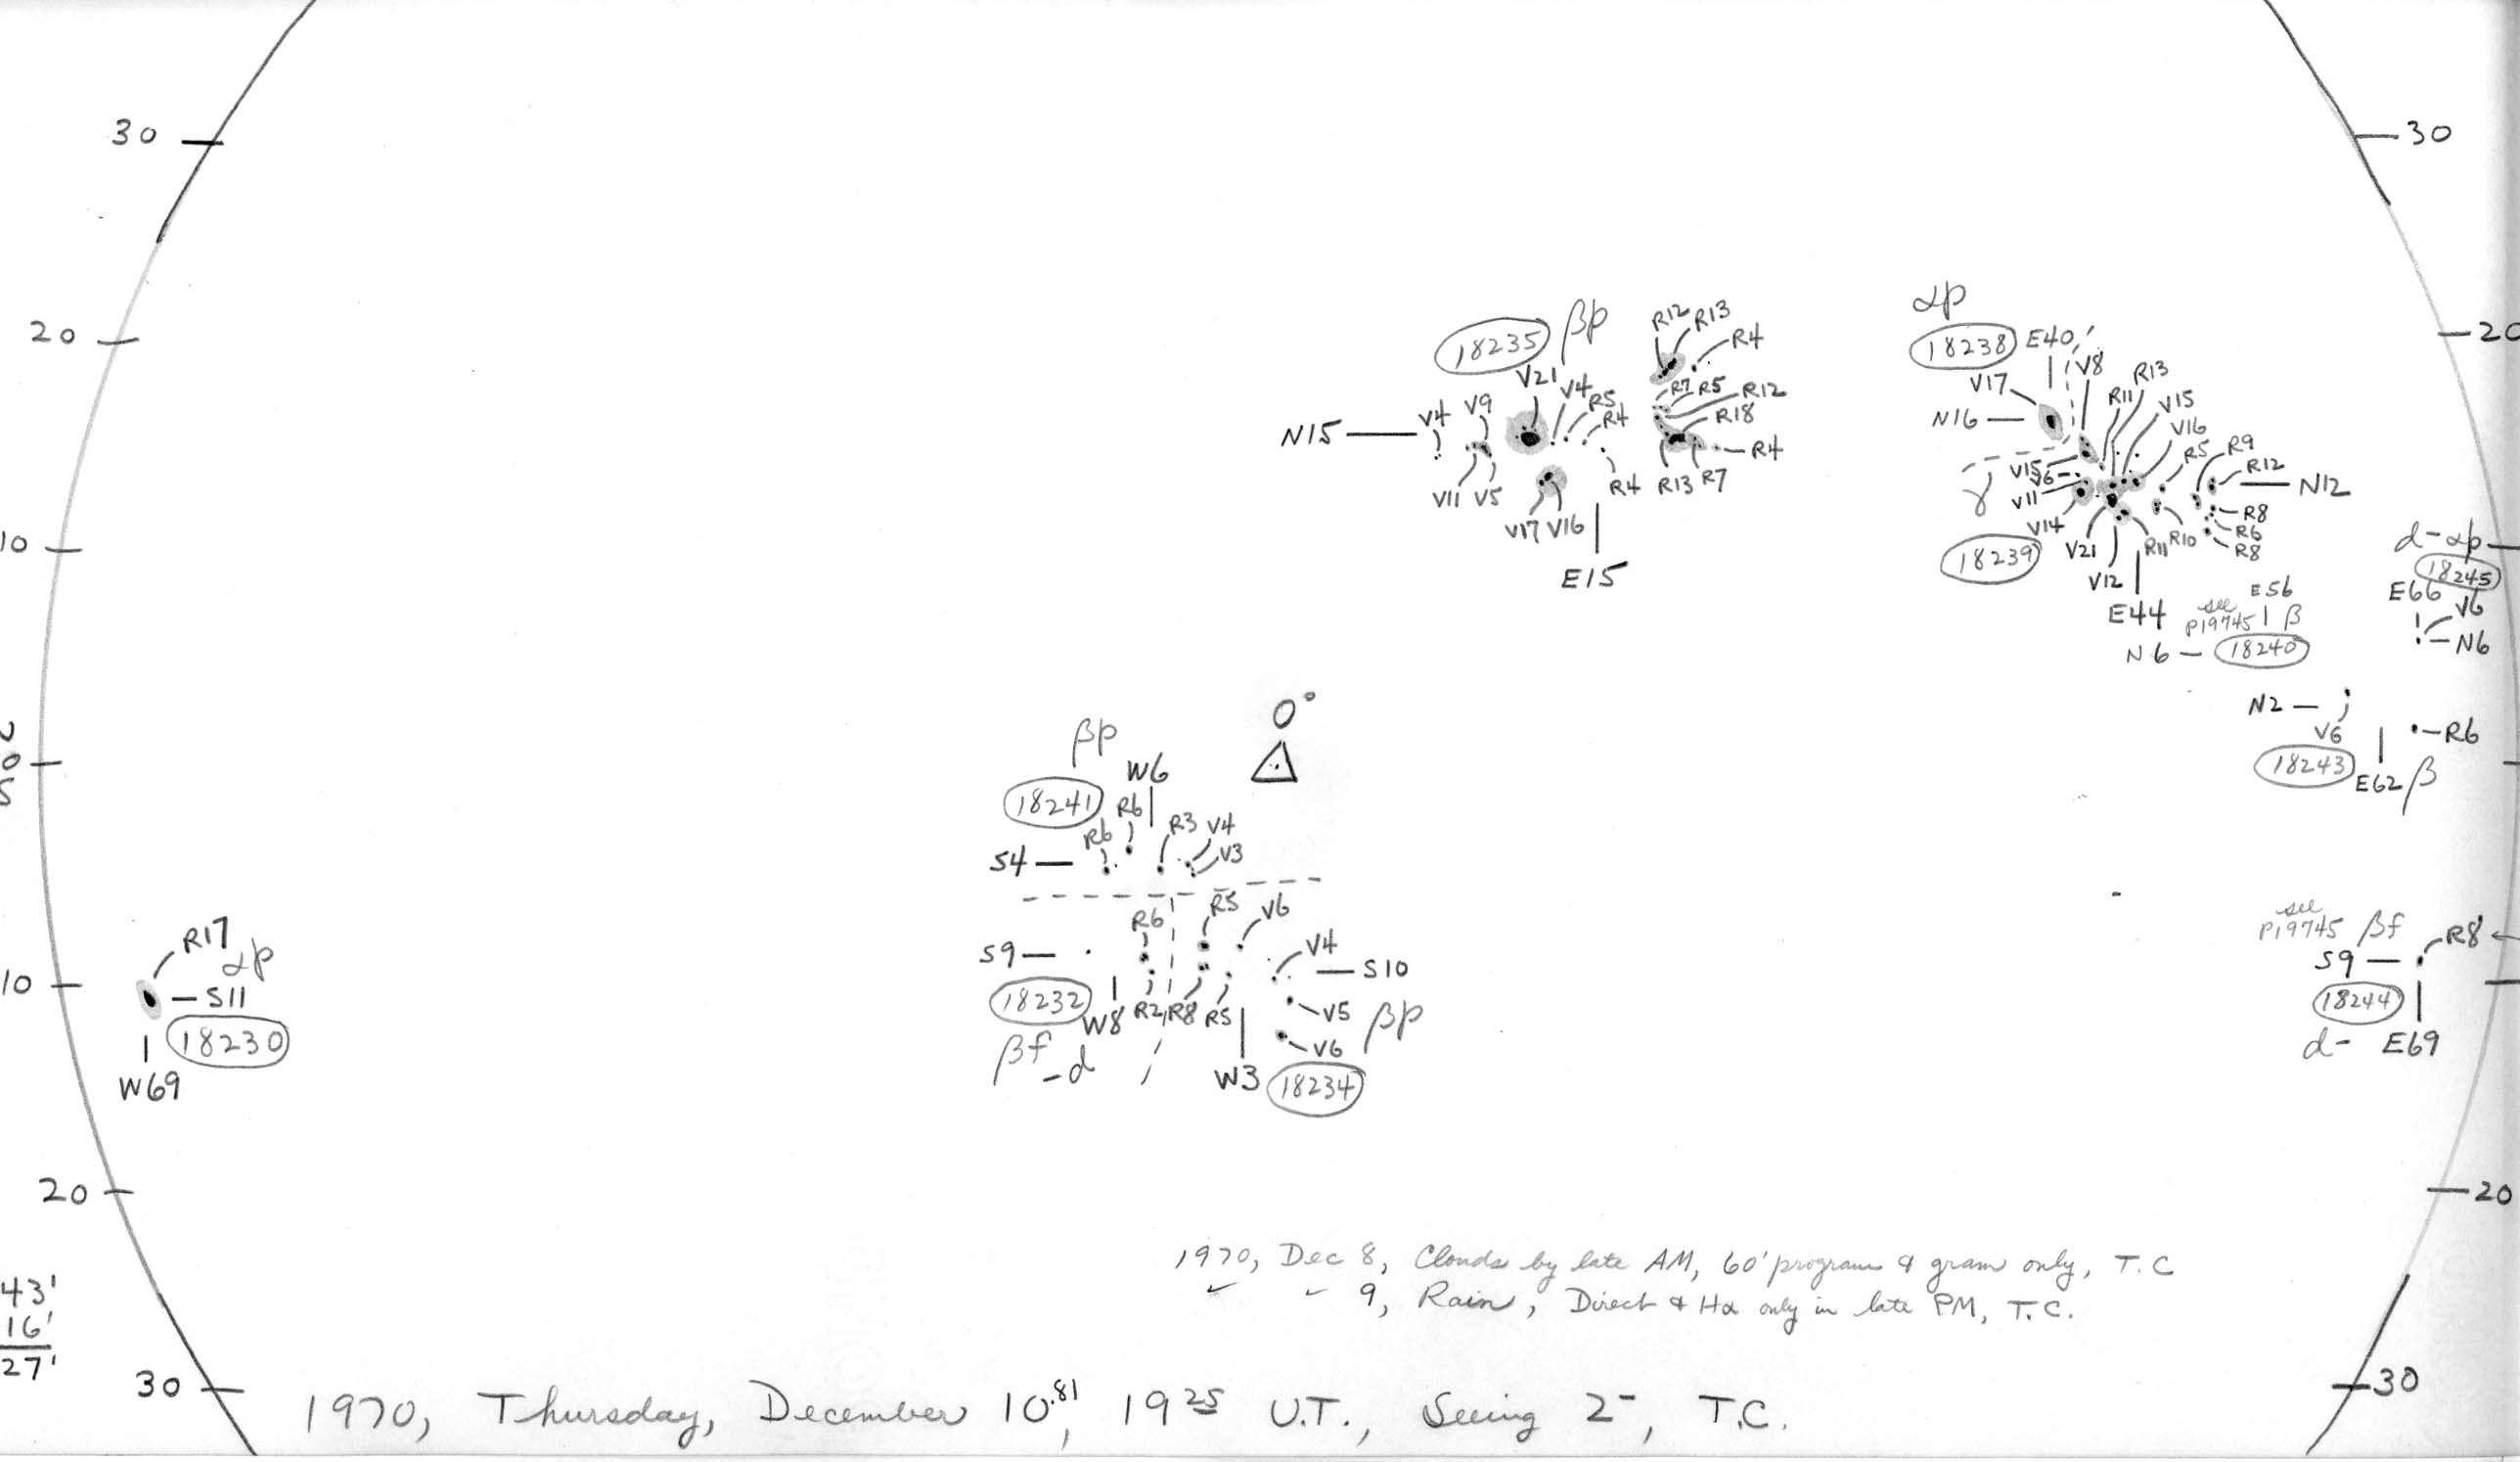 30
30
20
20
αp
18238
E40
βp
18235
R12 R13
R4
V21
V4
R5
R4
V4
V9
N15
V11
V5
V17
V16
E15
R4
R7
R5
R12
R18
R4
R13
R7
V17
N16
V8
R11
R13
V15
V16
R5
R9
R12
N12
V15
V6
V11
V14
γ
18239
V21
V12
R11
R10
R8
R6
R8
E44
10
d-αp
18245
E66
V6
N6
E56
see
P19745
β
N6
18240
N2
V6
R6
18243
E62
β
0°
N
0
S
βp
W6
18241
R6
R6
R3
V4
V3
S4
R6
R5
V6
S9
V4
S10
18232
W8
R2
R8
R5
V5
βp
V6
βf
-d
W3
18234
R17
αp
S11
10
18230
W69
see
P19745
βf
R8
S9
18244
d-
E69
20
20
1970, Dec 8, Clouds by late AM, 60' program & gram only, T.C
✓ ✓ 9, Rain, Direct & Hα only in late PM, T.C.
43'
16'
27'
30
30
1970, Thursday, December 10.81, 19 25 U.T., Seeing 2-, T.C.